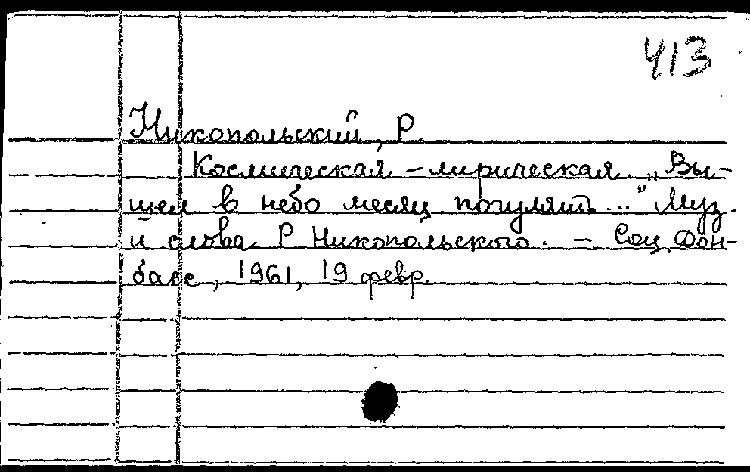 413
Никопольский, Р.
Космическая - лирическая „Вы-
шел в небо месяц погулять..." Муз.
и слова Р. Никопольского. - Соц. Дон-
басс, 1961, 19 февр.